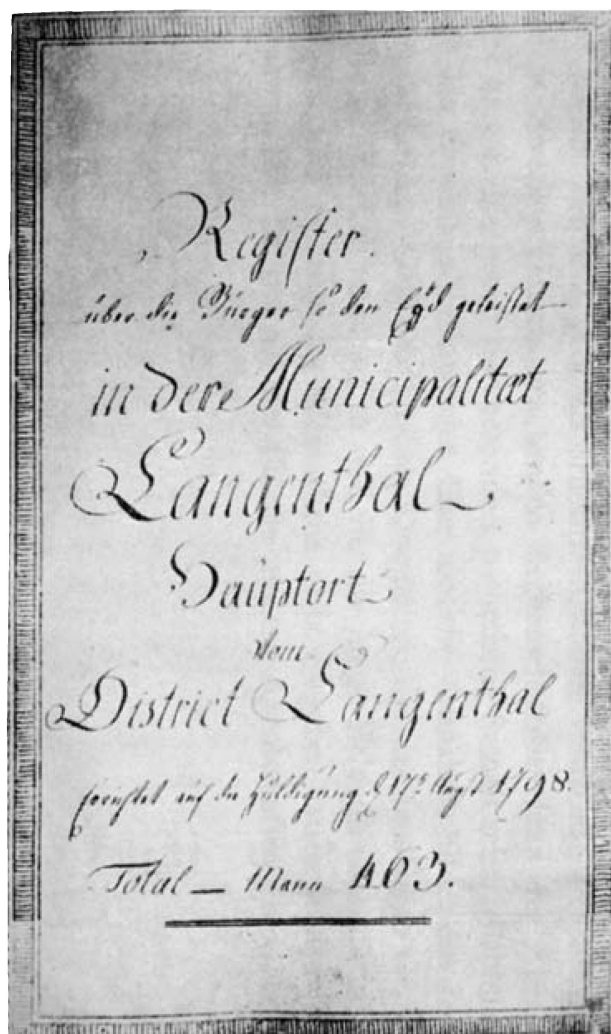 Register.
über die Burger so den Eÿd geleistet
in der Municipalitæt
Langenthal
Hauptort
vom
District Langenthal
errichtet auf die Huldigung d. 17.t Augst 1798.
Total — Mann 463.